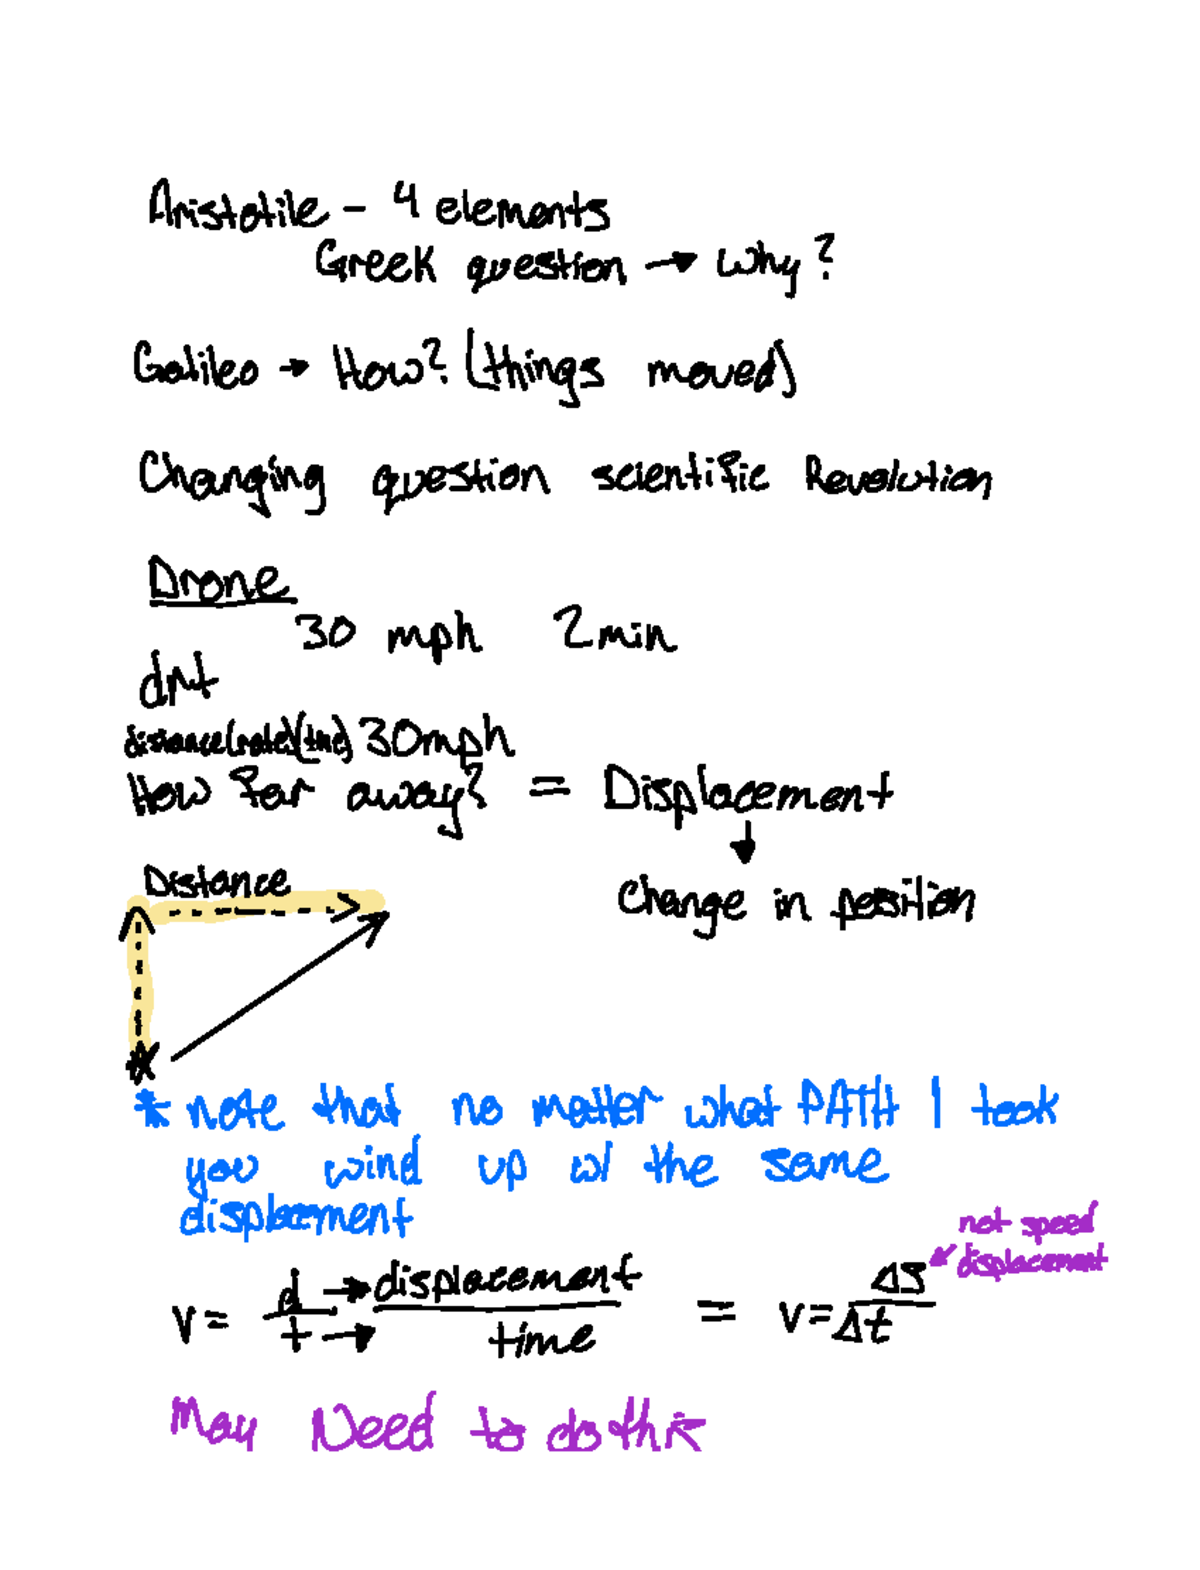 Aristotile - 4 elements
Greek question → Why?
Galileo → How? (things moved)
Changing question scientific Revolution
Drone
30 mph 2min
drt
distance(rate)(time) 30mph
How far away? = Displacement
↓
Change in position
Distance
* note that no matter what PATH I took
you wind up w/ the same
displacement
not speed
displacement
v = d/t → displacement/time = v = Δs/Δt
May Need to do this